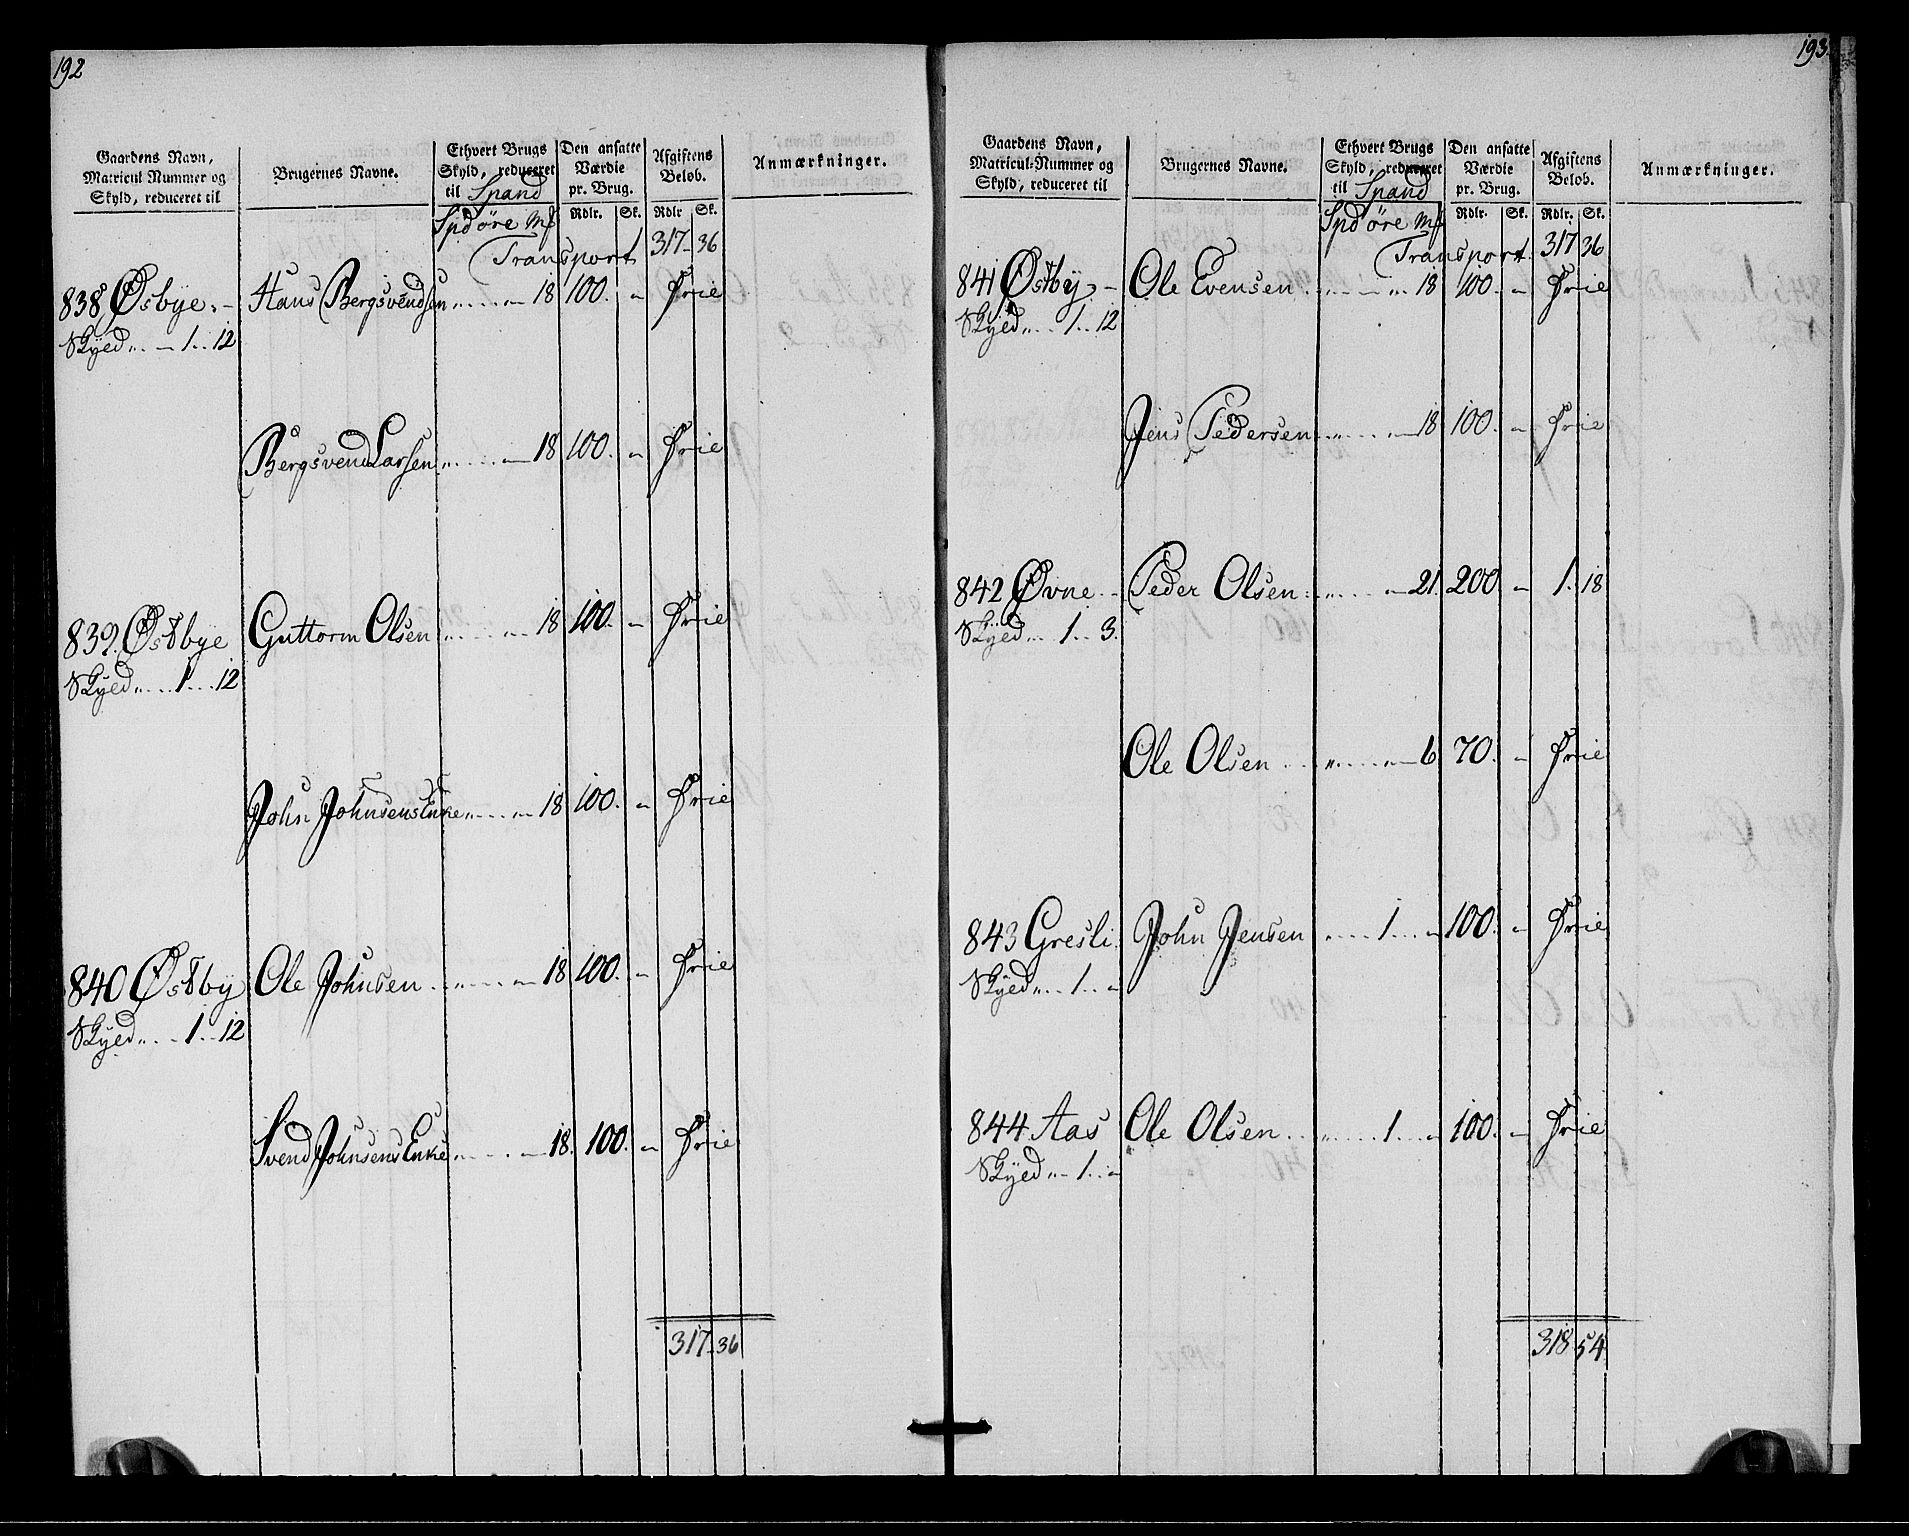 192
Gaardens Navn, Matricul Nummer og Skyld, reduceret til | Brugernes Navne. | Ethvert Brugs Skyld, reduceret til Spand | Den ansatte Værdie pr. Brug. | Afgiftens Beløb. | Anmærkninger.
Spd øre Mk | Rdlr. | Sk. | Rdlr | Sk.
Transport 317 - 36
838 Østbye. - Hans Bergsvendsen " .... - 18 100. " Frie
Skyld .. - 1 .. 12
Bergsvend Larsen " .... - 18 100. " Frie
839. Østbye Guttorm Olsen " .... - 18 100. " Frie
Skyld .... 1 ... 12
John Johnsens Enke " .... - 18 100. " Frie
840 Østby Ole Johnsen .. " .... - 18 100. " Frie
Skyld .. - 1 .. 12
Svend Johnsens Enke " .... - 18. 100. " Frie
317 - 36
193
Gaardens Navn, Matricul-Nummer og Skyld, reduceret til | Brugernes Navne. | Ethvert Brugs Skyld, reduceret til Spand | Den ansatte Værdie pr. Brug. | Afgiftens Beløb. | Anmærkninger.
Spd øre Mk | Rdlr. | Sk. | Rdlr. | Sk.
Transport. 317 36
841 Østby. - Ole Evensen .. " .... 18 100. " Frie
Skyld .... 1 .. 12
Jens Pedersen .. " .... - 18 100. " Frie
842 Øvne .. Peder Olsen .. " .... - 21. 200 " 1. 18
Skyld ... 1 .. 3.
Ole Olsen ... " .... - 6. 70. " Frie
843 Gresli. John Jensen " .... 1 ... " 100. " Frie
Skyld ... 1 .. "
844. Aas Ole Olsen ... " .... 1 ... " 100. " Frie
Skyld .. - 1 .. "
318 54